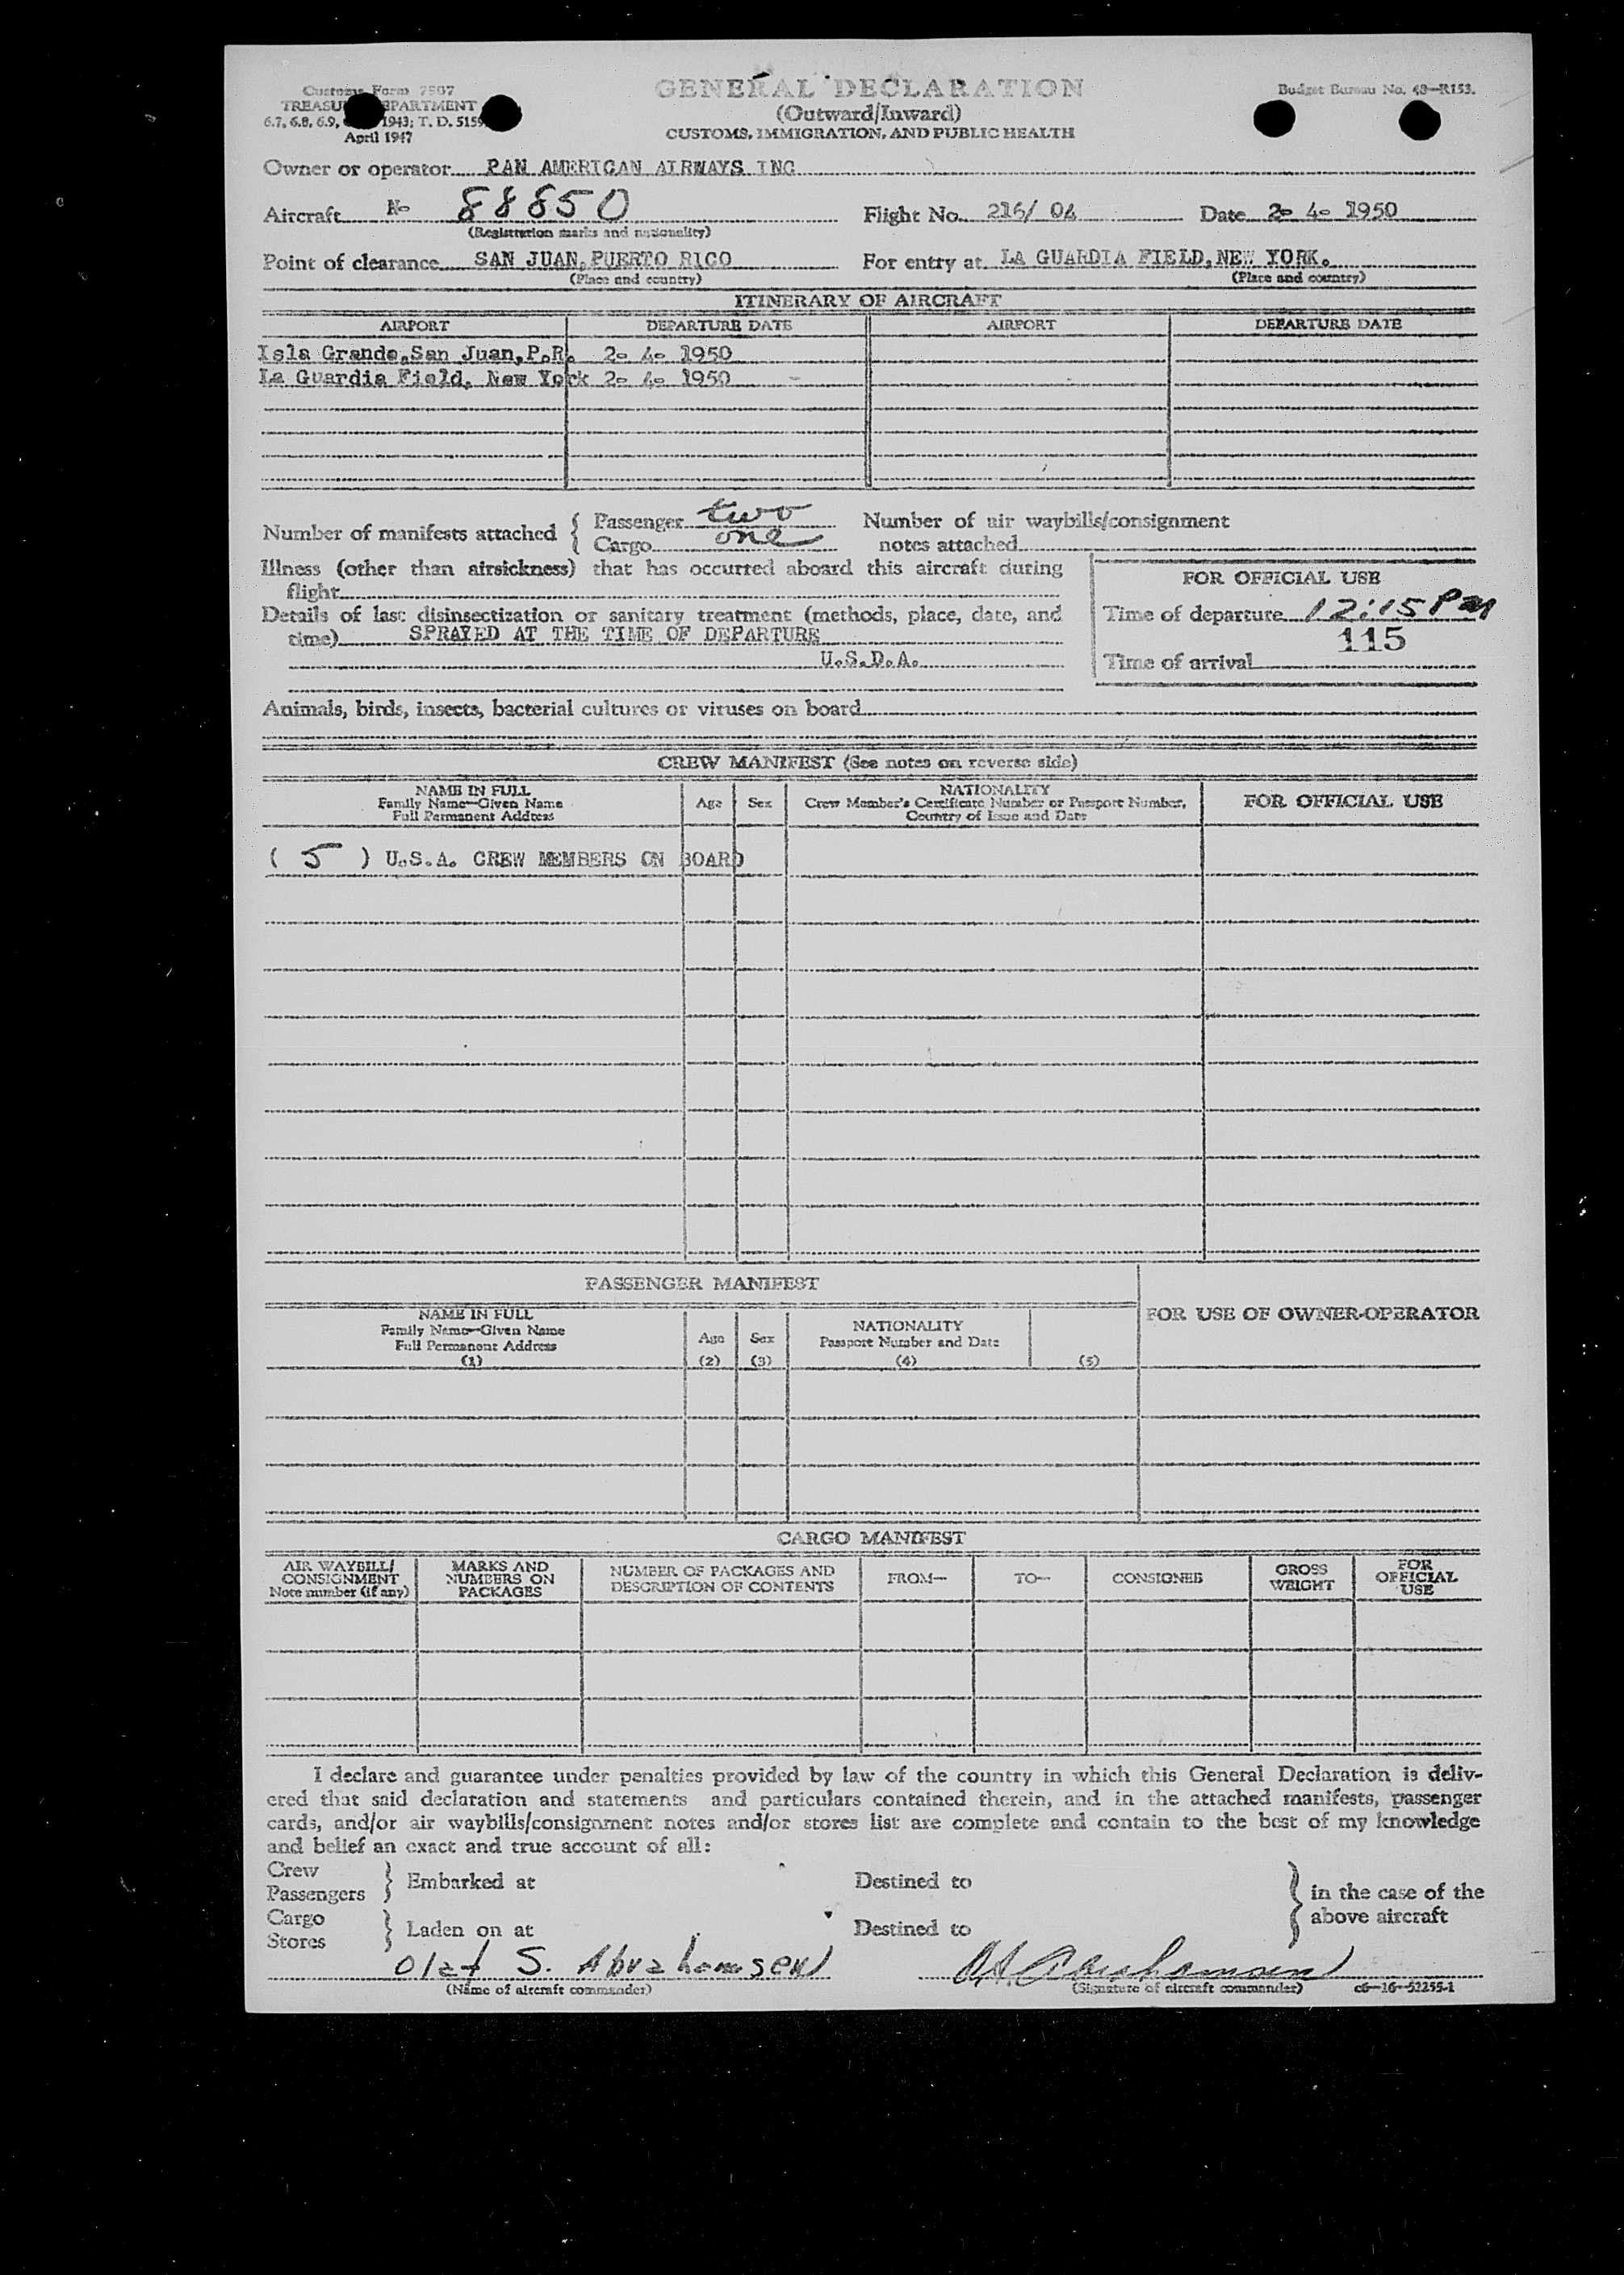 Customs Form 7507
GENERAL DECLARATION
Budget Bureau No. 48—R153.
TREASURY DEPARTMENT
(Outward/Inward)
6.7, 6.8, 6.9, 1943; T. D. 5159
CUSTOMS, IMMIGRATION, AND PUBLIC HEALTH
April 1947
Owner or operator PAN AMERICAN AIRWAYS INC
Aircraft N- 88850 Flight No. 216/ 04 Date 2- 4- 1950
(Registration marks and nationality)
Point of clearance SAN JUAN, PUERTO RICO For entry at LA GUARDIA FIELD, NEW YORK.
(Place and country) (Place and country)
ITINERARY OF AIRCRAFT
AIRPORT DEPARTURE DATE AIRPORT DEPARTURE DATE
Isla Grande, San Juan, P.R. 2- 4- 1950
La Guardia Field, New York 2- 4- 1950
Number of manifests attached { Passenger two Number of air waybills/consignment
Cargo one notes attached
Illness (other than airsickness) that has occurred aboard this aircraft during
flight
FOR OFFICIAL USE
Details of last disinsectization or sanitary treatment (methods, place, date, and
time) SPRAYED AT THE TIME OF DEPARTURE
U.S.D.A.
Time of departure 12:15 PM
115
Time of arrival
Animals, birds, insects, bacterial cultures or viruses on board
CREW MANIFEST (See notes on reverse side)
NAME IN FULL
Family Name—Given Name
Full Permanent Address
Age
Sex
NATIONALITY
Crew Member's Certificate Number or Passport Number,
Country of Issue and Date
FOR OFFICIAL USE
( 5 ) U.S.A. CREW MEMBERS ON BOARD
PASSENGER MANIFEST
NAME IN FULL
Family Name—Given Name
Full Permanent Address
(1)
Age
(2)
Sex
(3)
NATIONALITY
Passport Number and Date
(4)
(5)
FOR USE OF OWNER-OPERATOR
CARGO MANIFEST
AIR WAYBILL/
CONSIGNMENT
Note number (if any)
MARKS AND
NUMBERS ON
PACKAGES
NUMBER OF PACKAGES AND
DESCRIPTION OF CONTENTS
FROM—
TO—
CONSIGNEE
GROSS
WEIGHT
FOR
OFFICIAL
USE
I declare and guarantee under penalties provided by law of the country in which this General Declaration is deliv-
ered that said declaration and statements and particulars contained therein, and in the attached manifests, passenger
cards, and/or air waybills/consignment notes and/or stores list are complete and contain to the best of my knowledge
and belief an exact and true account of all:
Crew
Passengers } Embarked at Destined to
Cargo
Stores } Laden on at Destined to
} in the case of the
above aircraft
Olaf S. Abrahamsen O S Abrahamsen
(Name of aircraft commander) (Signature of aircraft commander) c6—16—52255-1